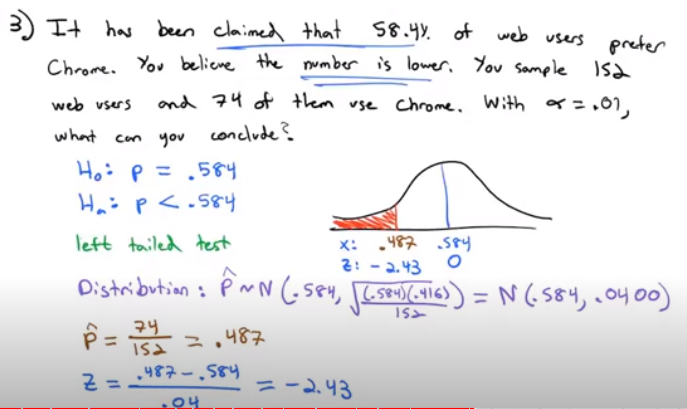 3) It has been claimed that 58.4% of web users prefer
Chrome. You believe the number is lower. You sample 152
web users and 74 of them use Chrome. With α = .01,
what can you conclude?
H₀: p = .584
Hₐ: p < .584
left tailed test
x: .487 .584
z: -2.43 0
Distribution: p̂ ~ N(.584, √((.584)(.416)/152)) = N(.584, .0400)
p̂ = 74/152 = .487
z = (.487 - .584)/.04 = -2.43